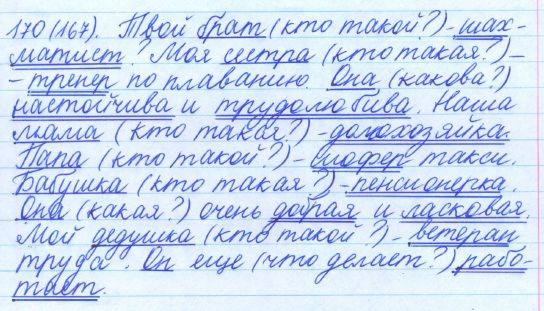 170 (167). Твой брат (кто такой?) - шах-
матист? Моя сестра (кто такая?) -
- тренер по плаванию. Она (какова?)
настойчива и трудолюбива. Наша
мама (кто такая?) - домохозяйка.
Папа (кто такой?) - шофер такси.
Бабушка (кто такая?) - пенсионерка.
Она (какая?) очень добрая и ласковая.
Мой дедушка (кто такой?) - ветеран
труда. Он еще (что делает?) рабо-
тает.